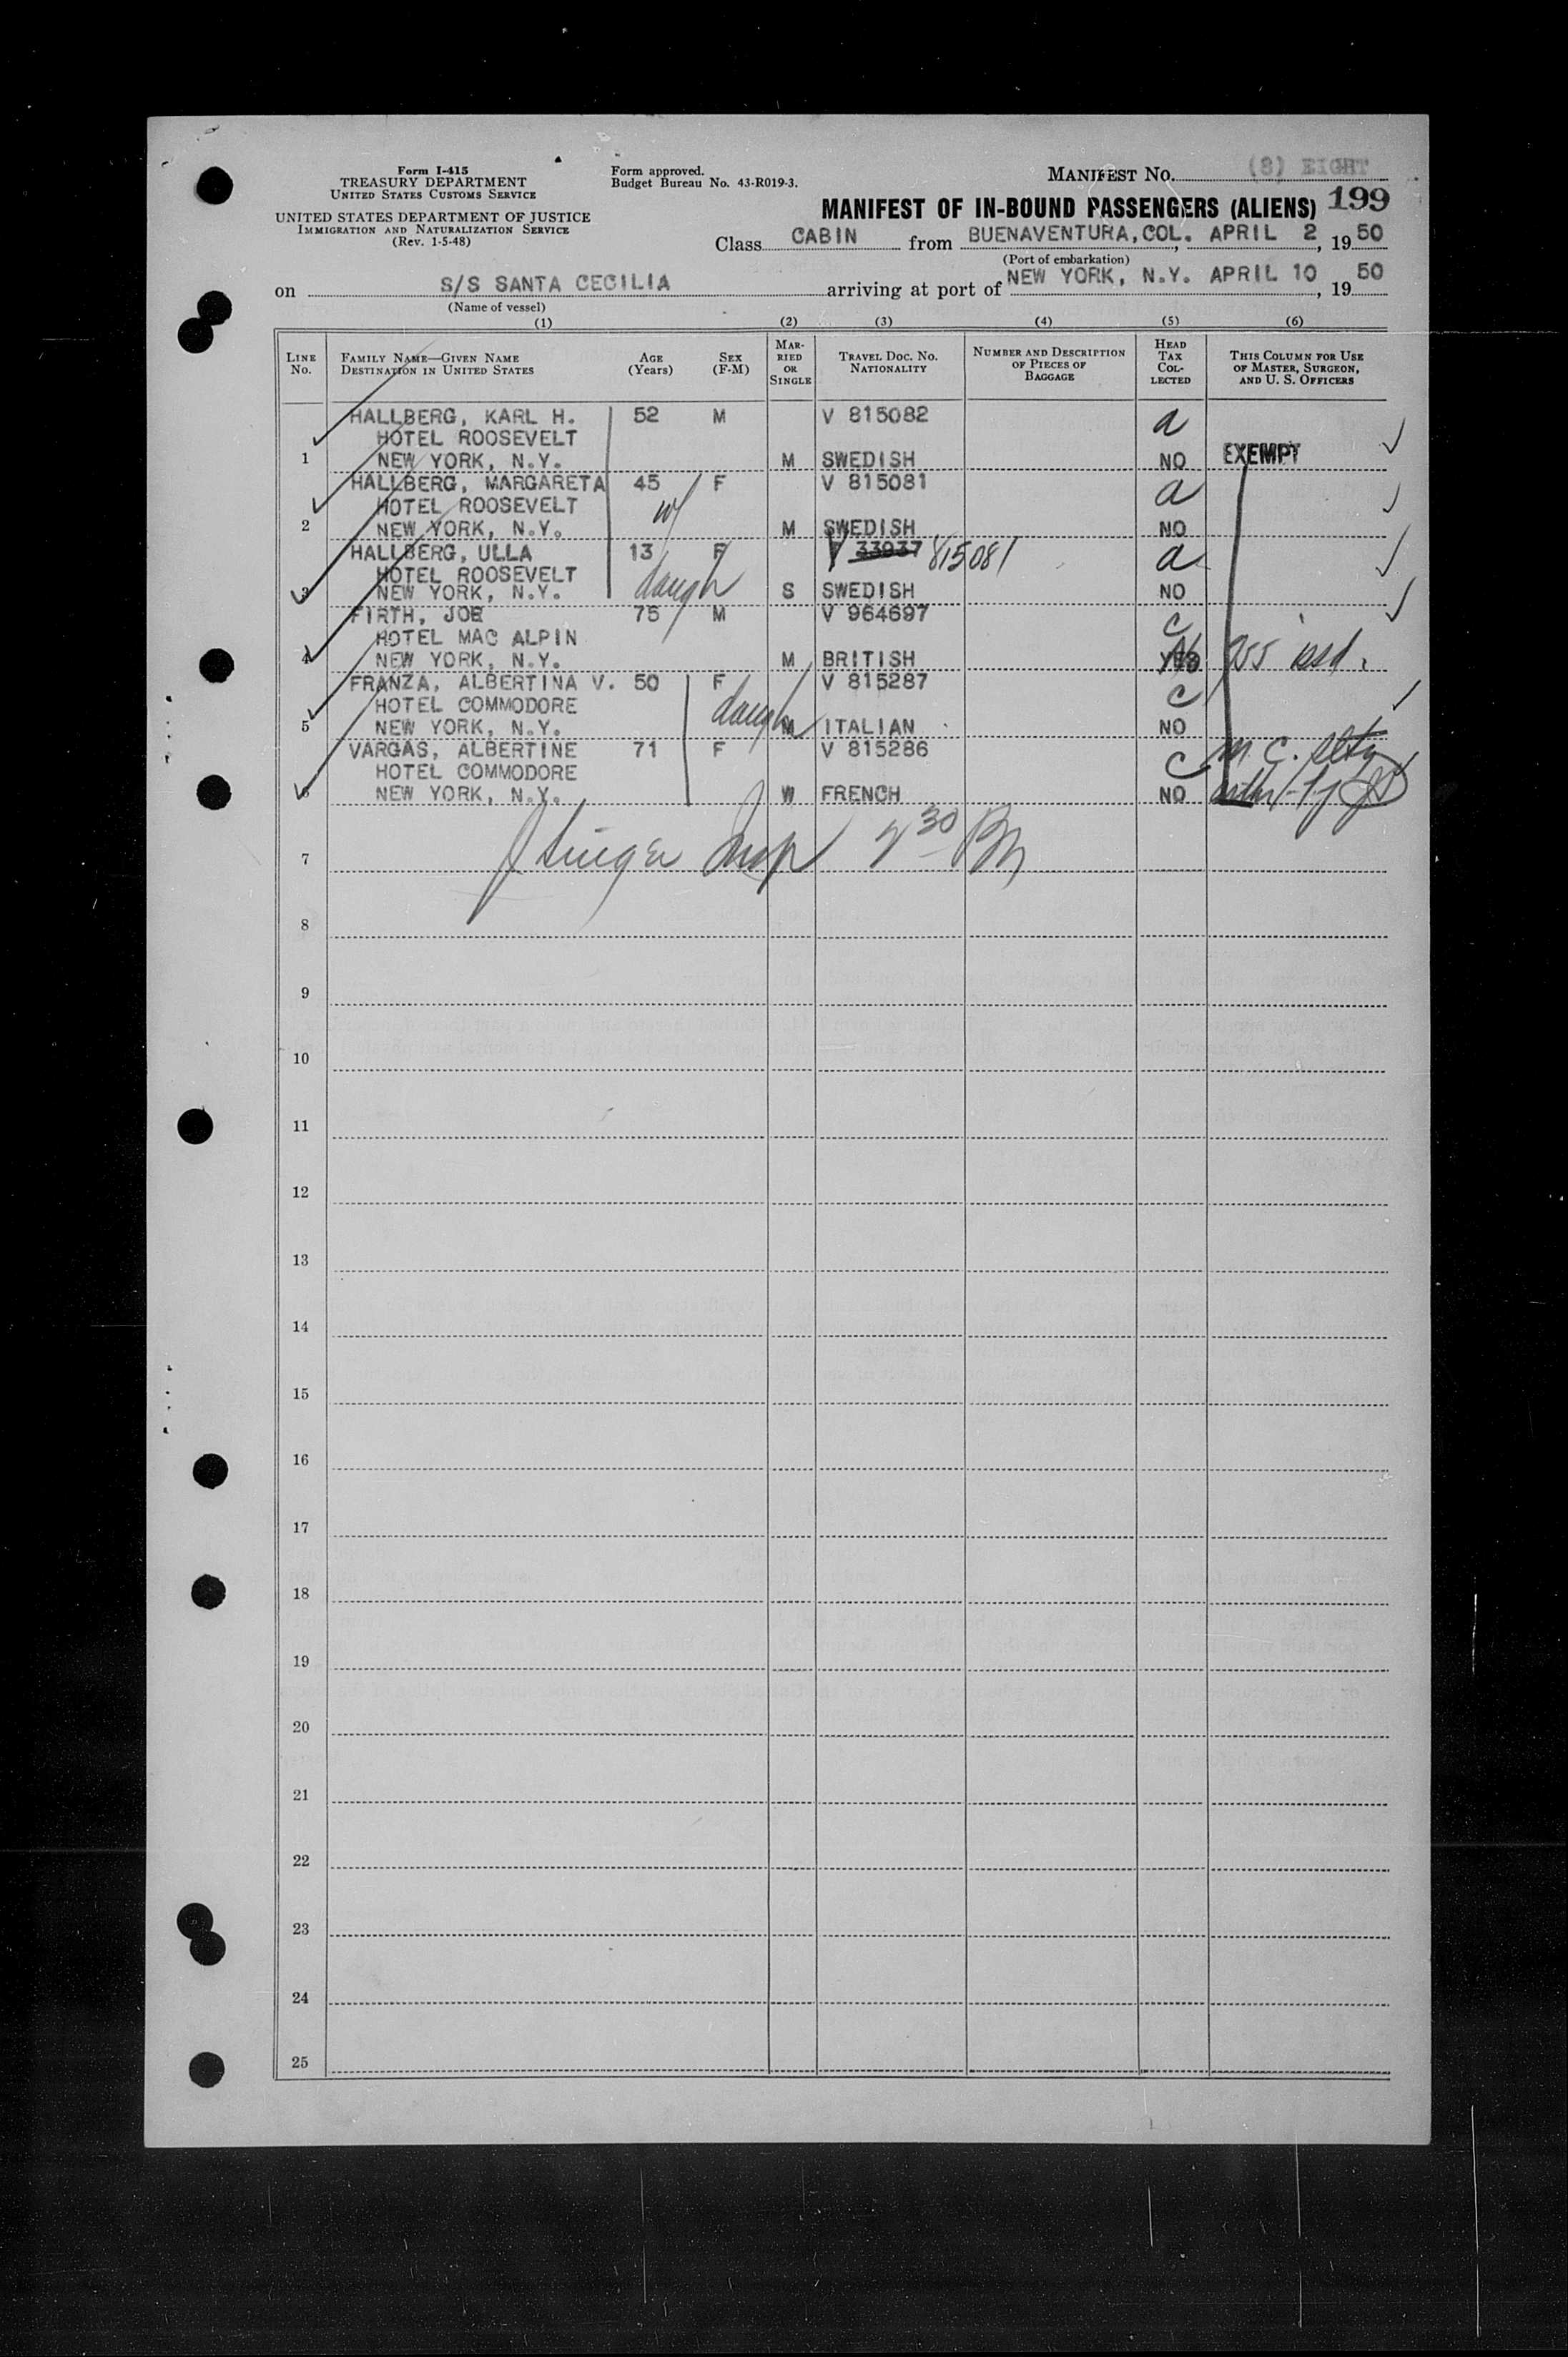 Form I-415
TREASURY DEPARTMENT
UNITED STATES CUSTOMS SERVICE
UNITED STATES DEPARTMENT OF JUSTICE
IMMIGRATION AND NATURALIZATION SERVICE
(Rev. 1-5-48)
Form approved.
Budget Bureau No. 43-R019-3.
MANIFEST NO. (8) EIGHT
MANIFEST OF IN-BOUND PASSENGERS (ALIENS) 199
Class CABIN from BUENAVENTURA, COL. APRIL 2, 1950
(Port of embarkation)
on S/S SANTA CECILIA arriving at port of NEW YORK, N.Y. APRIL 10, 1950
(Name of vessel)
(1) (2) (3) (4) (5) (6)
LINE No. FAMILY NAME—GIVEN NAME DESTINATION IN UNITED STATES AGE (Years) SEX (F-M) MARRIED OR SINGLE TRAVEL DOC. NO. NATIONALITY NUMBER AND DESCRIPTION OF PIECES OF BAGGAGE HEAD TAX COLLECTED THIS COLUMN FOR USE OF MASTER, SURGEON, AND U. S. OFFICERS
HALLBERG, KARL H. 52 M V 815082 a
HOTEL ROOSEVELT
1 NEW YORK, N.Y. M SWEDISH NO EXEMPT
HALLBERG, MARGARETA 45 F V 815081 a
HOTEL ROOSEVELT w/
2 NEW YORK, N.Y. M SWEDISH NO
HALLBERG, ULLA 13 F V 33937 815081 a
HOTEL ROOSEVELT daugh
3 NEW YORK, N.Y. S SWEDISH NO
FIRTH, JOE 75 M V 964697 c
HOTEL MAC ALPIN
4 NEW YORK, N.Y. M BRITISH YES No 255 issd.
FRANZA, ALBERTINA V. 50 F V 815287 c
HOTEL COMMODORE daugh
5 NEW YORK, N.Y. M ITALIAN NO
VARGAS, ALBERTINE 71 F V 815286 c M.C.
HOTEL COMMODORE
6 NEW YORK, N.Y. W FRENCH NO
7 Insp 2 30 PM
8
9
10
11
12
13
14
15
16
17
18
19
20
21
22
23
24
25